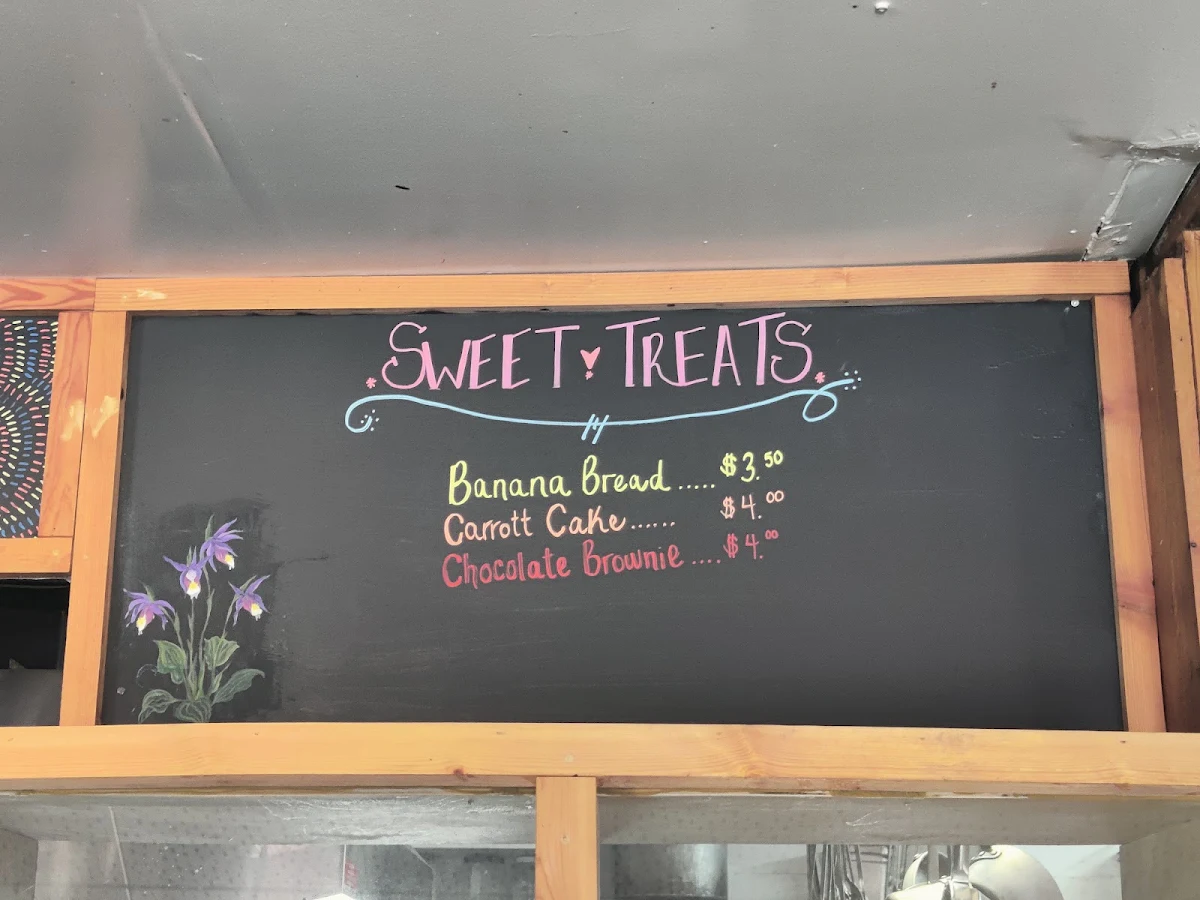 SWEET TREATS
Banana Bread ..... $3.50
Carrott Cake ...... $4.00
Chocolate Brownie .... $4.00